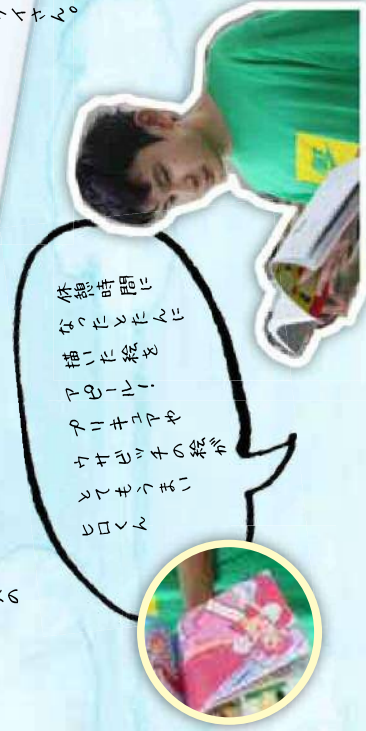 イさん。
休憩時間に
なったとたんに
描いた絵を
アピール!
プリキュアや
ウサビッチの絵が
とてもうまい
ヒロくん
の